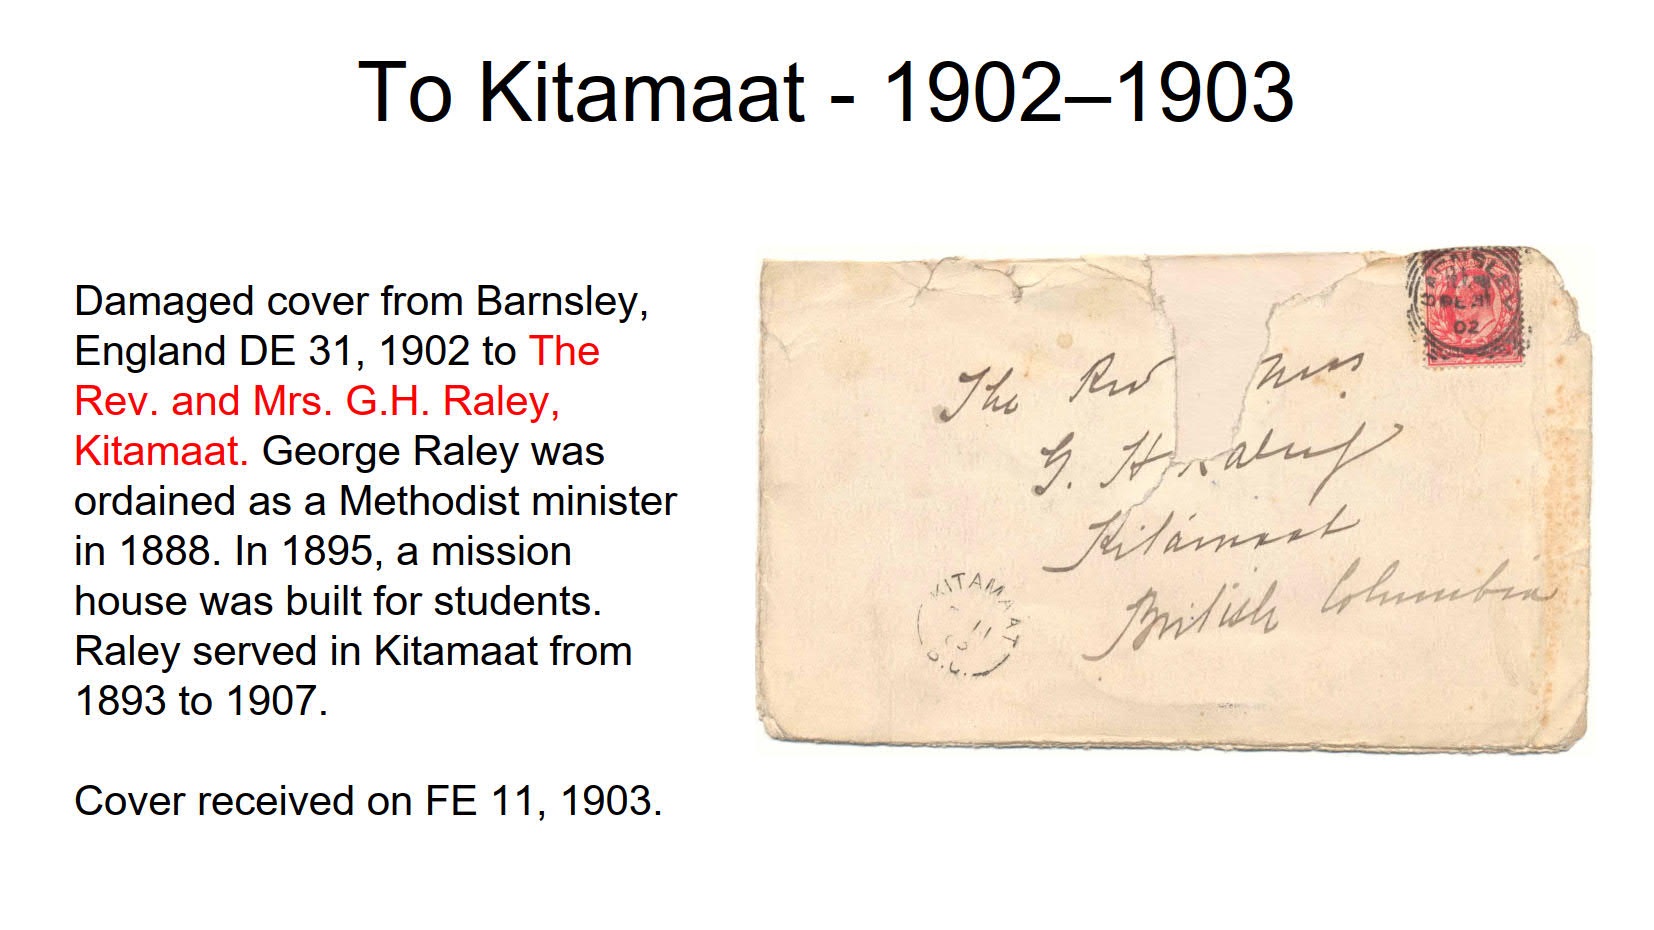 To Kitamaat - 1902–1903
Damaged cover from Barnsley,
England DE 31, 1902 to The
Rev. and Mrs. G.H. Raley,
Kitamaat. George Raley was
ordained as a Methodist minister
in 1888. In 1895, a mission
house was built for students.
Raley served in Kitamaat from
1893 to 1907.
Cover received on FE 11, 1903.
BARNSLEY
DE 31
02
The Rev Mrs
G. H. Raley
Kitamaat
British Columbia
KITAMAAT
11
03
B.C.